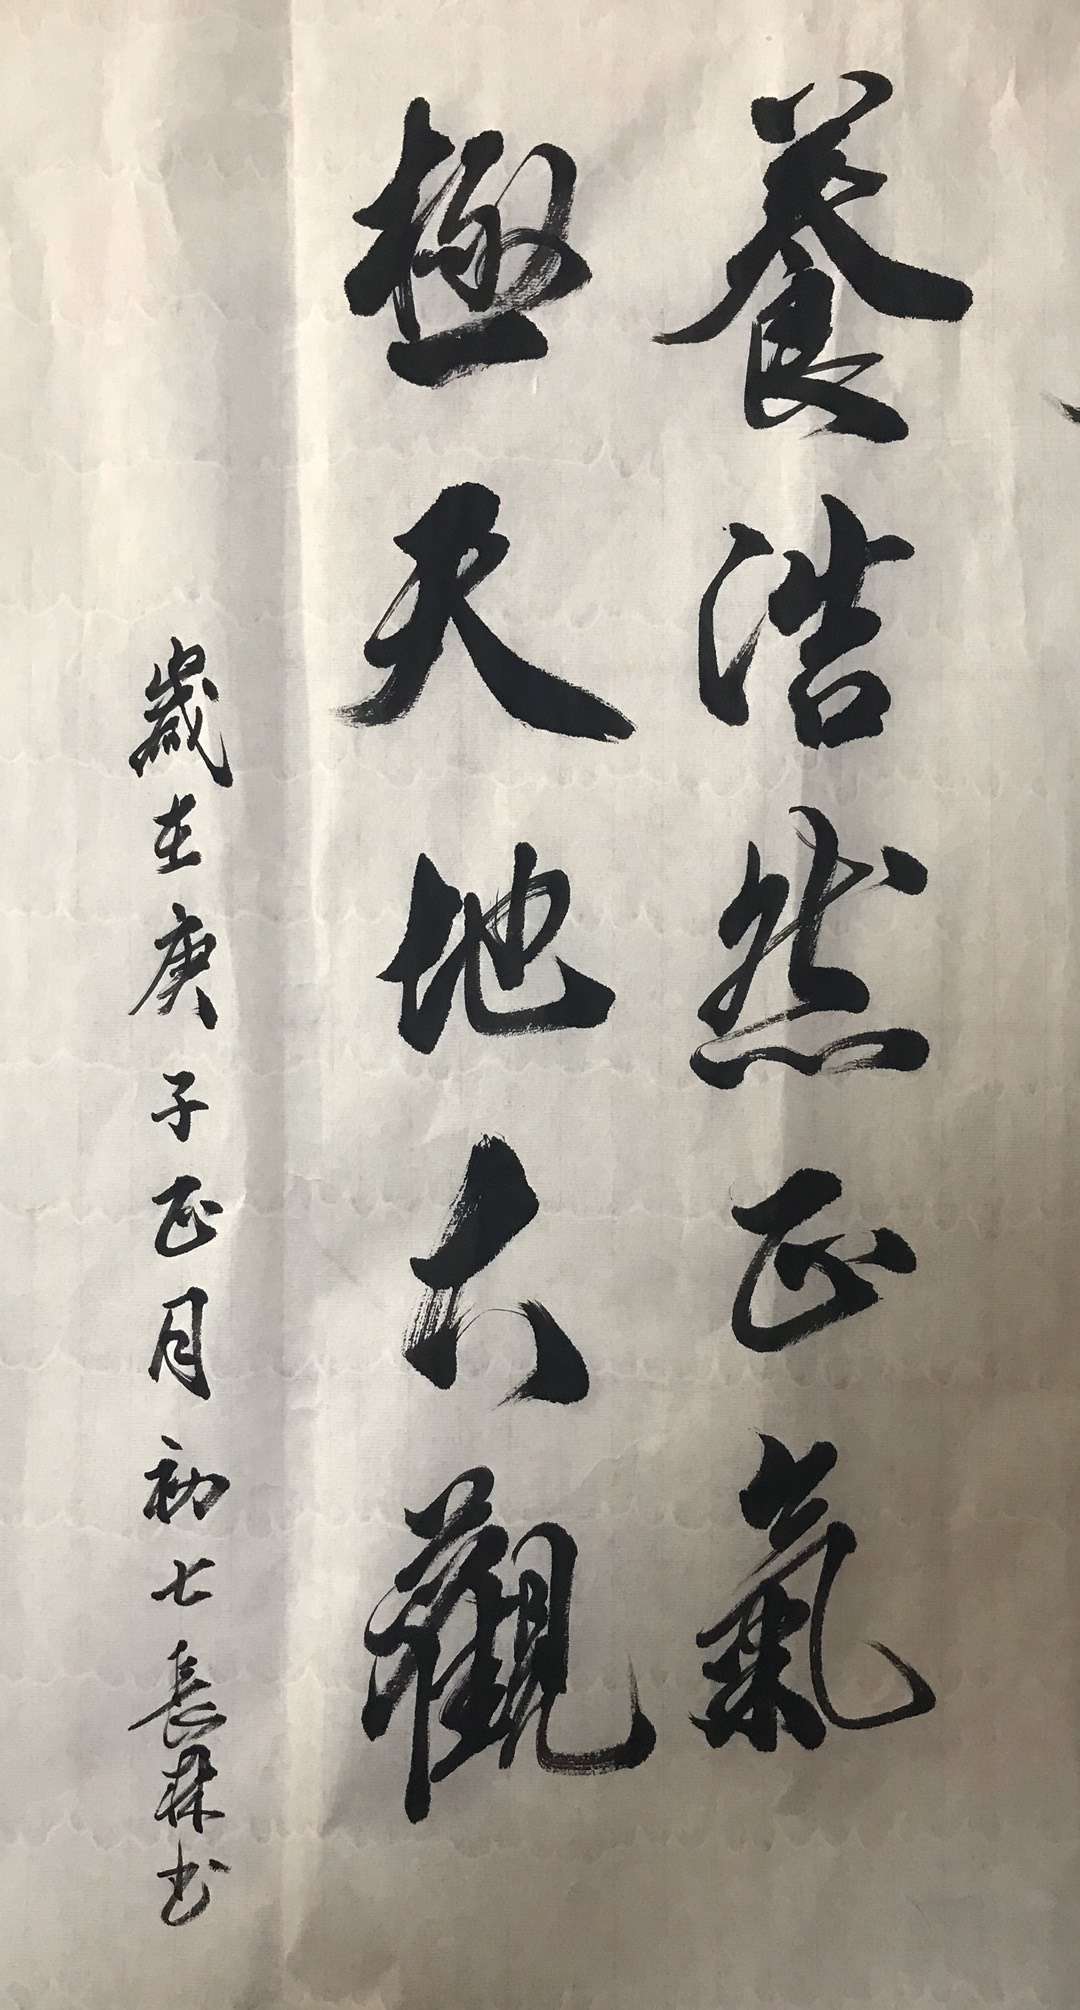 養浩然正氣
極天地大觀
歲在庚子正月初七長林书